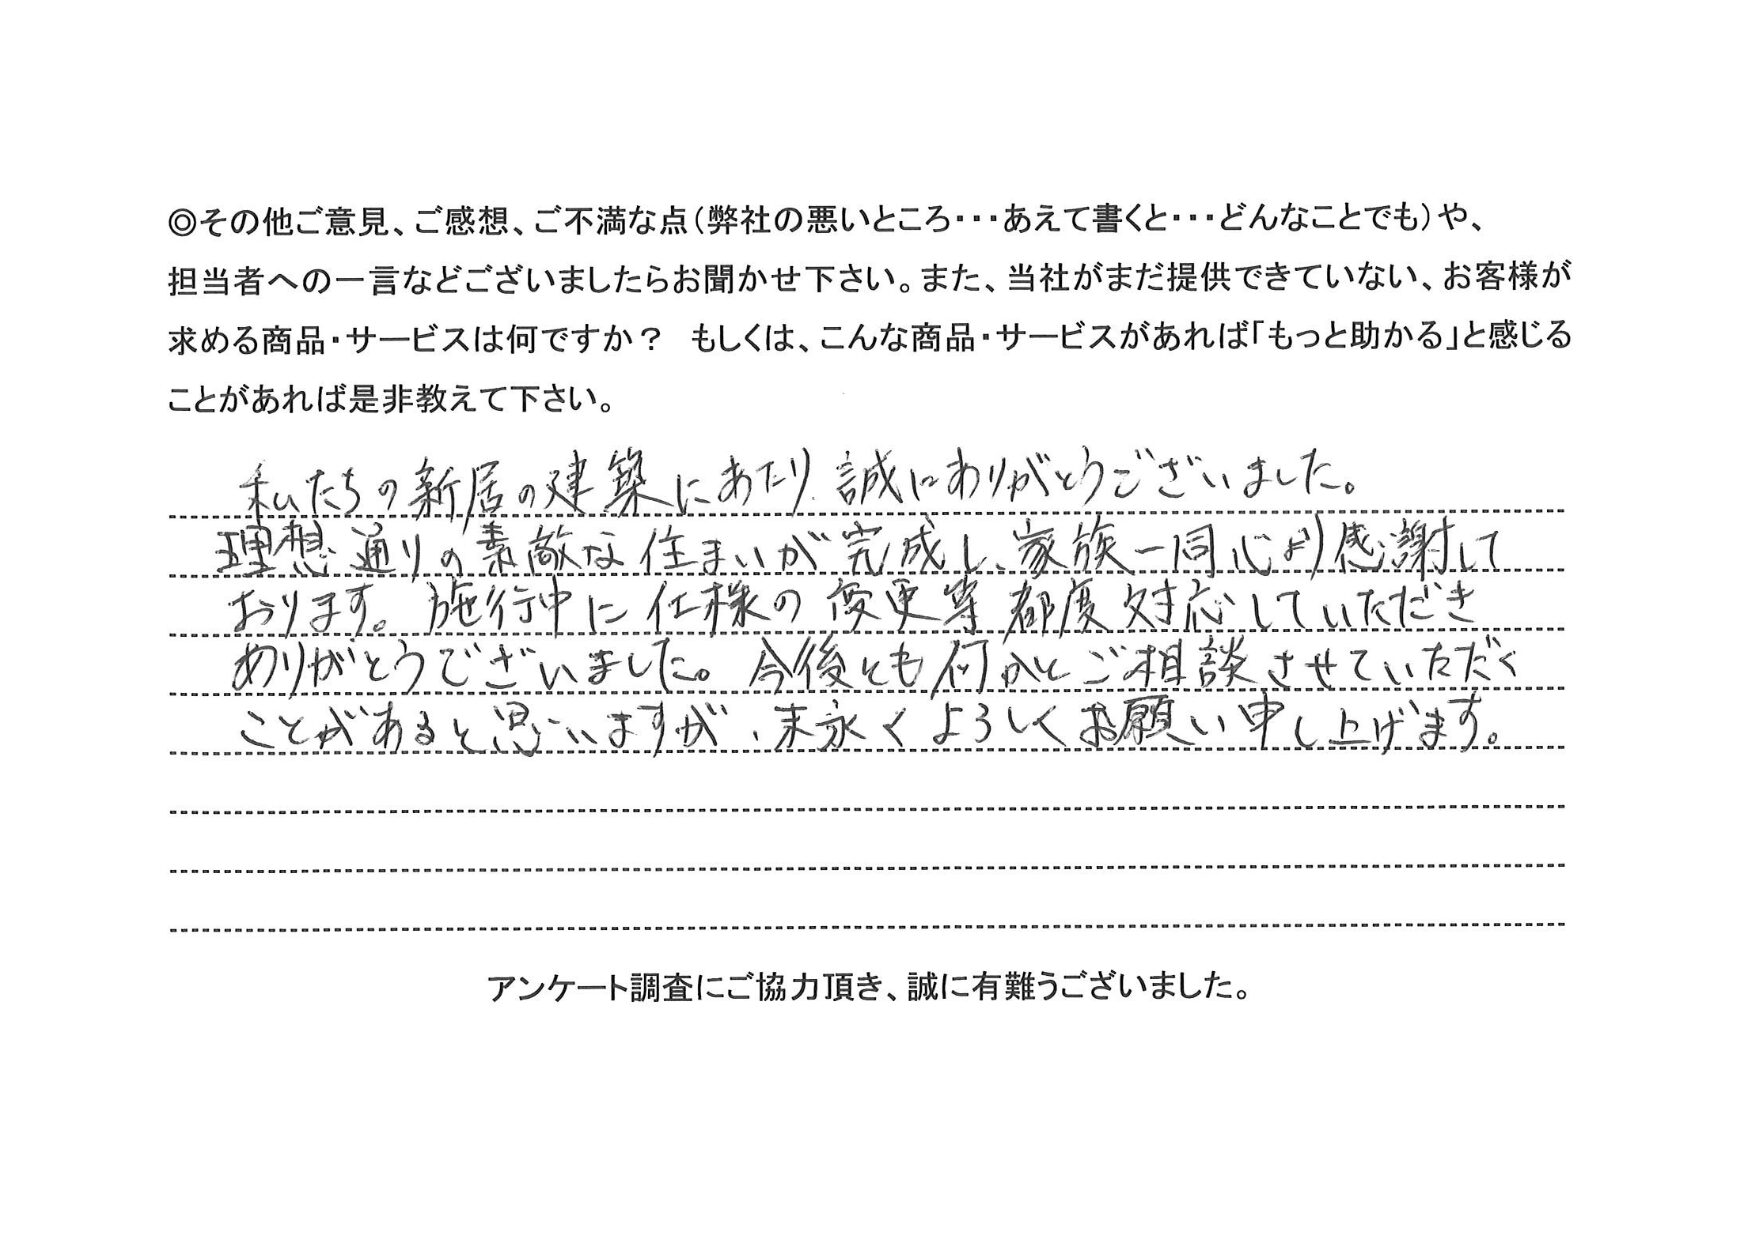 ◎その他ご意見、ご感想、ご不満な点（弊社の悪いところ・・・あえて書くと・・・どんなことでも）や、
担当者への一言などございましたらお聞かせ下さい。また、当社がまだ提供できていない、お客様が
求める商品・サービスは何ですか？ もしくは、こんな商品・サービスがあれば「もっと助かる」と感じる
ことがあれば是非教えて下さい。
私たちの新居の建築にあたり誠にありがとうございました。
理想通りの素敵な住まいが完成し、家族一同心より感謝して
おります。施行中に仕様の変更等都度対応していただき
ありがとうございました。今後とも何かとご相談させていただく
ことがあると思いますが、末永くよろしくお願い申し上げます。
アンケート調査にご協力頂き、誠に有難うございました。